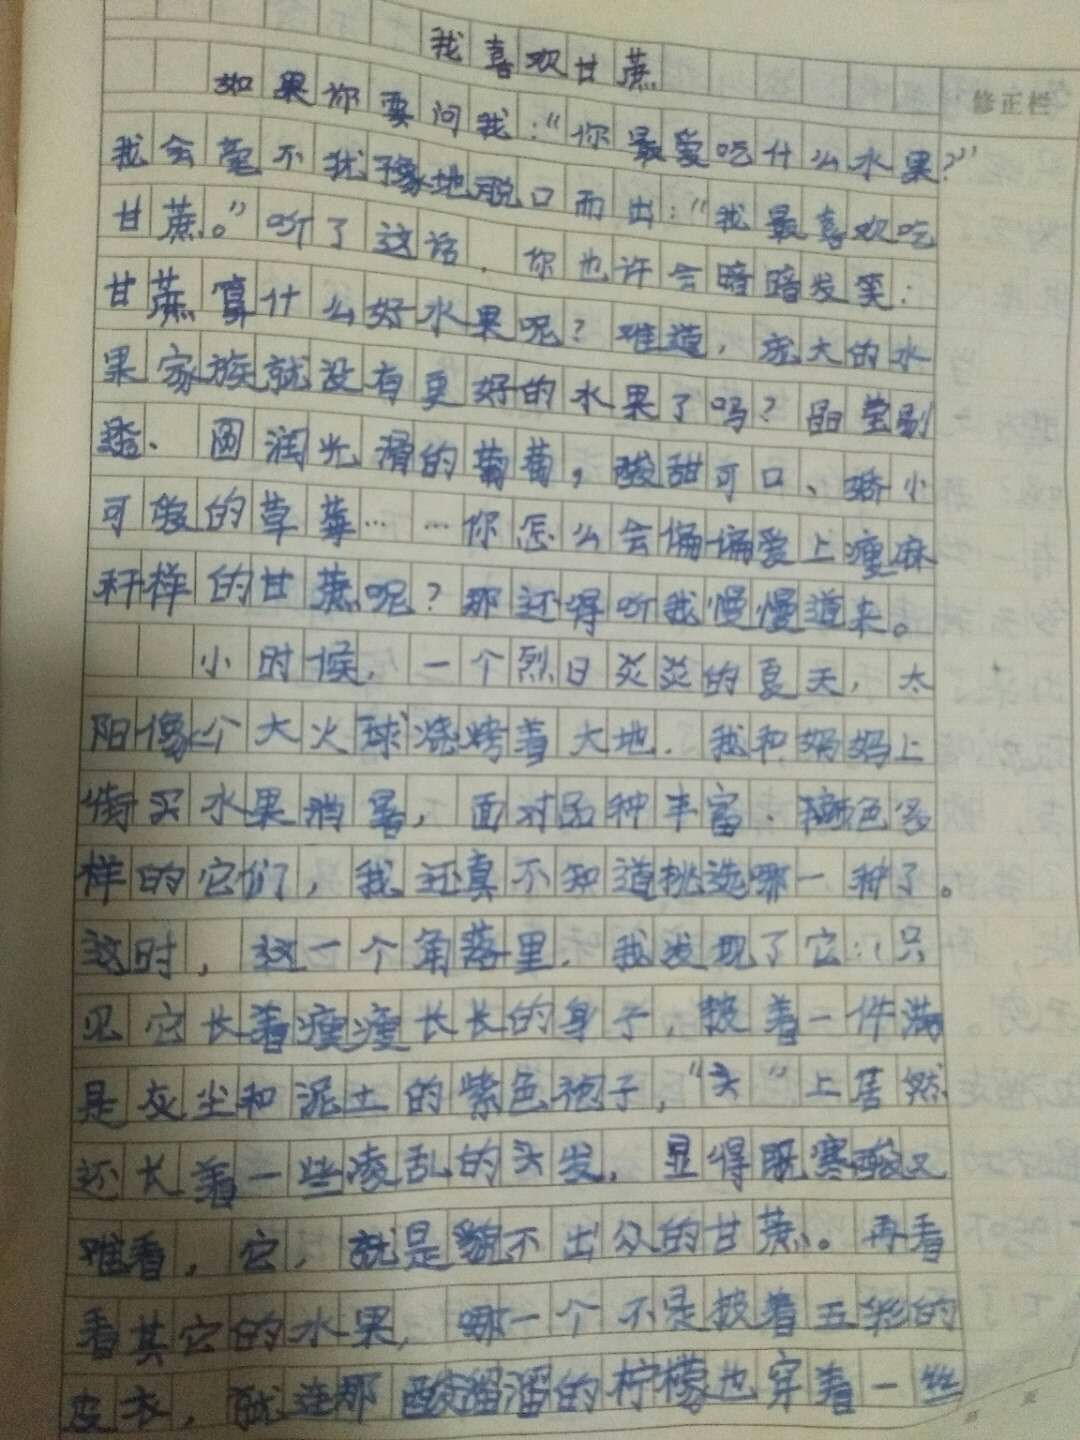 我喜欢甘蔗
修正栏
如果你要问我:“你最爱吃什么水果?”
我会毫不犹豫地脱口而出:“我最喜欢吃
甘蔗。”听了这话,你也许会暗暗发笑:
甘蔗算什么好水果呢?难道,庞大的水
果家族就没有更好的水果了吗?晶莹剔
透、圆润光滑的葡萄,酸甜可口、娇小
可爱的草莓……你怎么会偏偏爱上瘦麻
秆样的甘蔗呢?那还得听我慢慢道来。
小时候,一个烈日炎炎的夏天,太
阳像个大火球烧烤着大地.我和妈妈上
街买水果消暑,面对品种丰富、颜色多
样的它们,我还真不知道挑选哪一种了。
这时,这一个角落里,我发现了它:只
见它长着瘦瘦长长的身子,披着一件满
是灰尘和泥土的紫色袍子,“头”上居然
还长着一些凌乱的头发,显得既寒酸又
难看,它,就是貌不出众的甘蔗。再看
看其它的水果,哪一个不是披着五彩的
皮衣,就连那酸溜溜的柠檬也穿着一丝